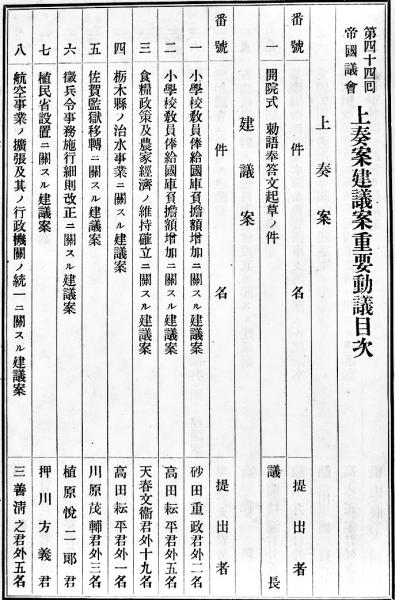 第四十四回
帝國議會
上奏案建議案重要動議目次
上奏案
番號 件名 提出者
一 開院式 勅語奉答文起草ノ件 議長
建議案
番號 件名 提出者
一 小學校敎員俸給國庫負擔額增加ニ關スル建議案 砂田重政君外二名
二 小學校敎員俸給國庫負擔額增加ニ關スル建議案 高田耘平君外五名
三 食糧政策及農家經濟ノ維持確立ニ關スル建議案 天春文衞君外十九名
四 栃木縣ノ治水事業ニ關スル建議案 高田耘平君外一名
五 佐賀監獄移轉ニ關スル建議案 川原茂輔君外三名
六 徵兵令事務施行細則改正ニ關スル建議案 植原悅二郞君
七 植民省設置ニ關スル建議案 押川方義君
八 航空事業ノ擴張及其ノ行政機關ノ統一ニ關スル建議案 三善淸之君外五名